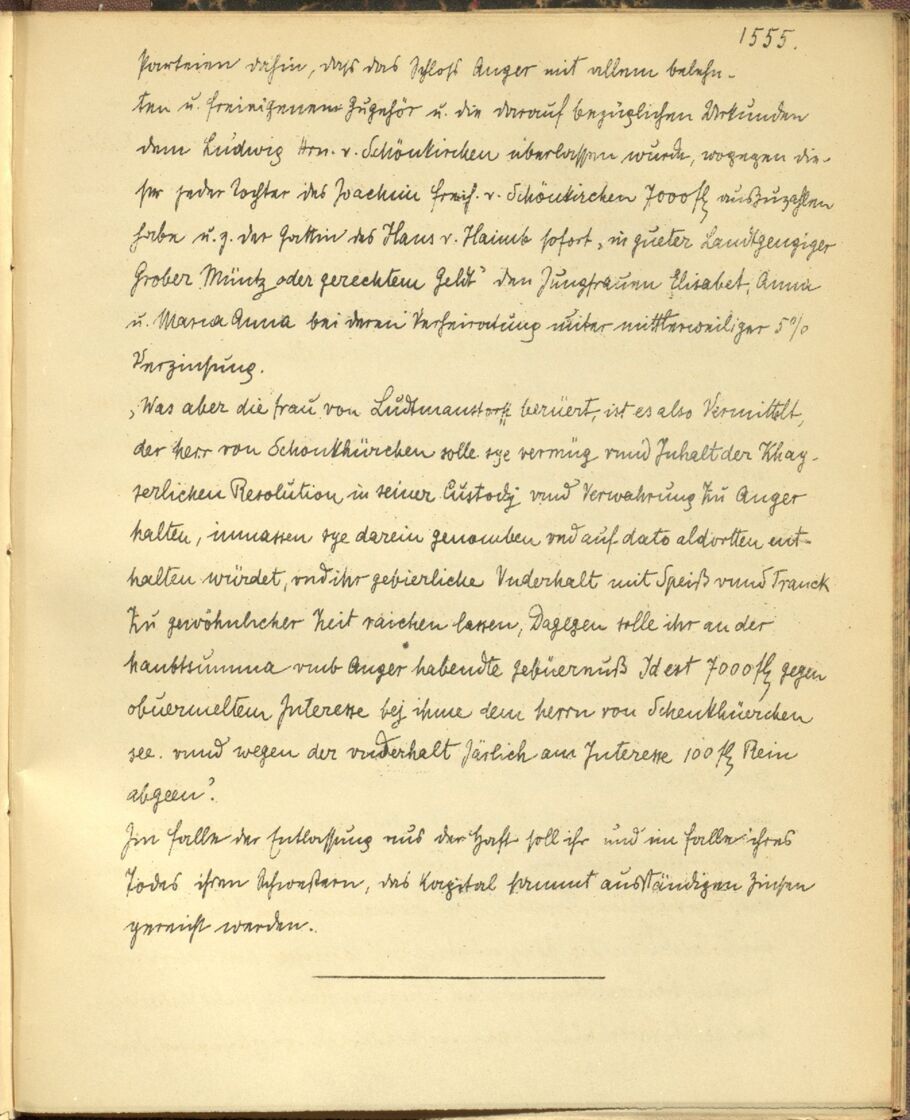 1555.
Parteien dahin, dass das Schloss Anger mit allem belehn-
ten u. freieigenem Zugehör u. die darauf bezüglichen Urkunden
dem Ludwig Hrn. v. Schönkirchen überlassen wurde, wogegen die-
ser jeder Tochter des Joachim Freih. v. Schönkirchen 7000 fl auszuzahlen
habe u. z. der Gattin des Hans v. Haimb sofort „in gueter Landtgengiger
Grober Müntz oder gerechtem Geldt“ den Jungfrauen Elisabet, Anna
u. Maria Anna bei deren Verheiratung unter mittlerweiliger 5%
Verzinsung.
„Was aber die frau von Ludtmanstorff berüert, ist es also Vermittelt,
der herr von Schönkhürchen solle sye vermüg vnnd Inhalt der Khay-
serlichen Resolution in seiner Custodj vnnd Verwahrung Zu Anger
halten, inmassen sye darein genomben vnd auf dato aldortten ent-
halten würdet, vnd ihr gebierliche Vnderhalt mit Speiß vnnd Tranck
Zu gewöhnlicher Zeit raichen lassen, Dagegen solle ihr an der
haubtsumma vmb Anger habendte gebüernuß Id est 7000 fl gegen
obuermeltem Interesse bej ihme dem herrn von Schenkhüerchen
see. vnnd wegen der vnderhalt Järlich am Interesse 100 fl Rein
abgeen“.
Im Falle der Entlassung aus der Haft soll ihr und im Falle ihres
Todes ihren Schwestern, das Kapital sammt ausständigen Zinsen
gereicht werden.